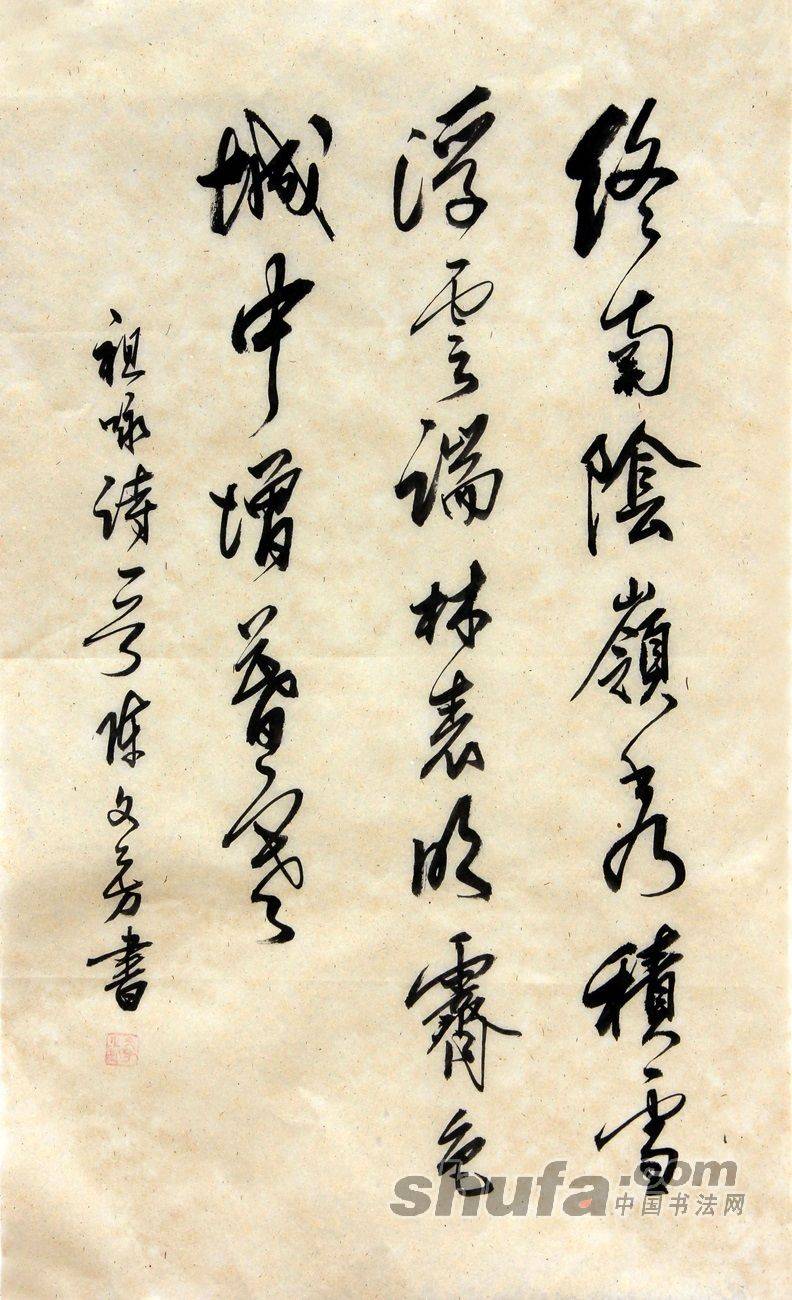 終南陰嶺秀積雪
浮雲端林表明霽色
城中增暮寒
祖咏詩一首陳文芳書
shufa.com
中国书法网